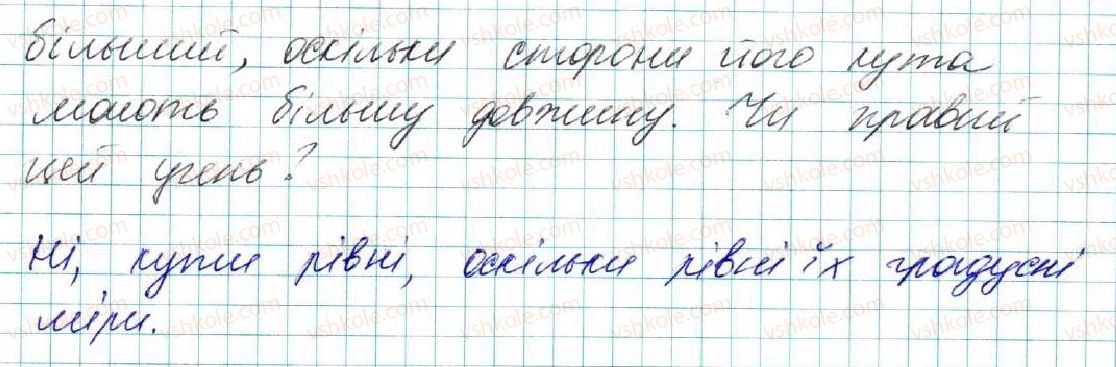 більший, оскільки сторони його кута
мають більшу довжину. Чи правий
цей учень?
Ні, кути рівні, оскільки рівні їх градусні
міри.